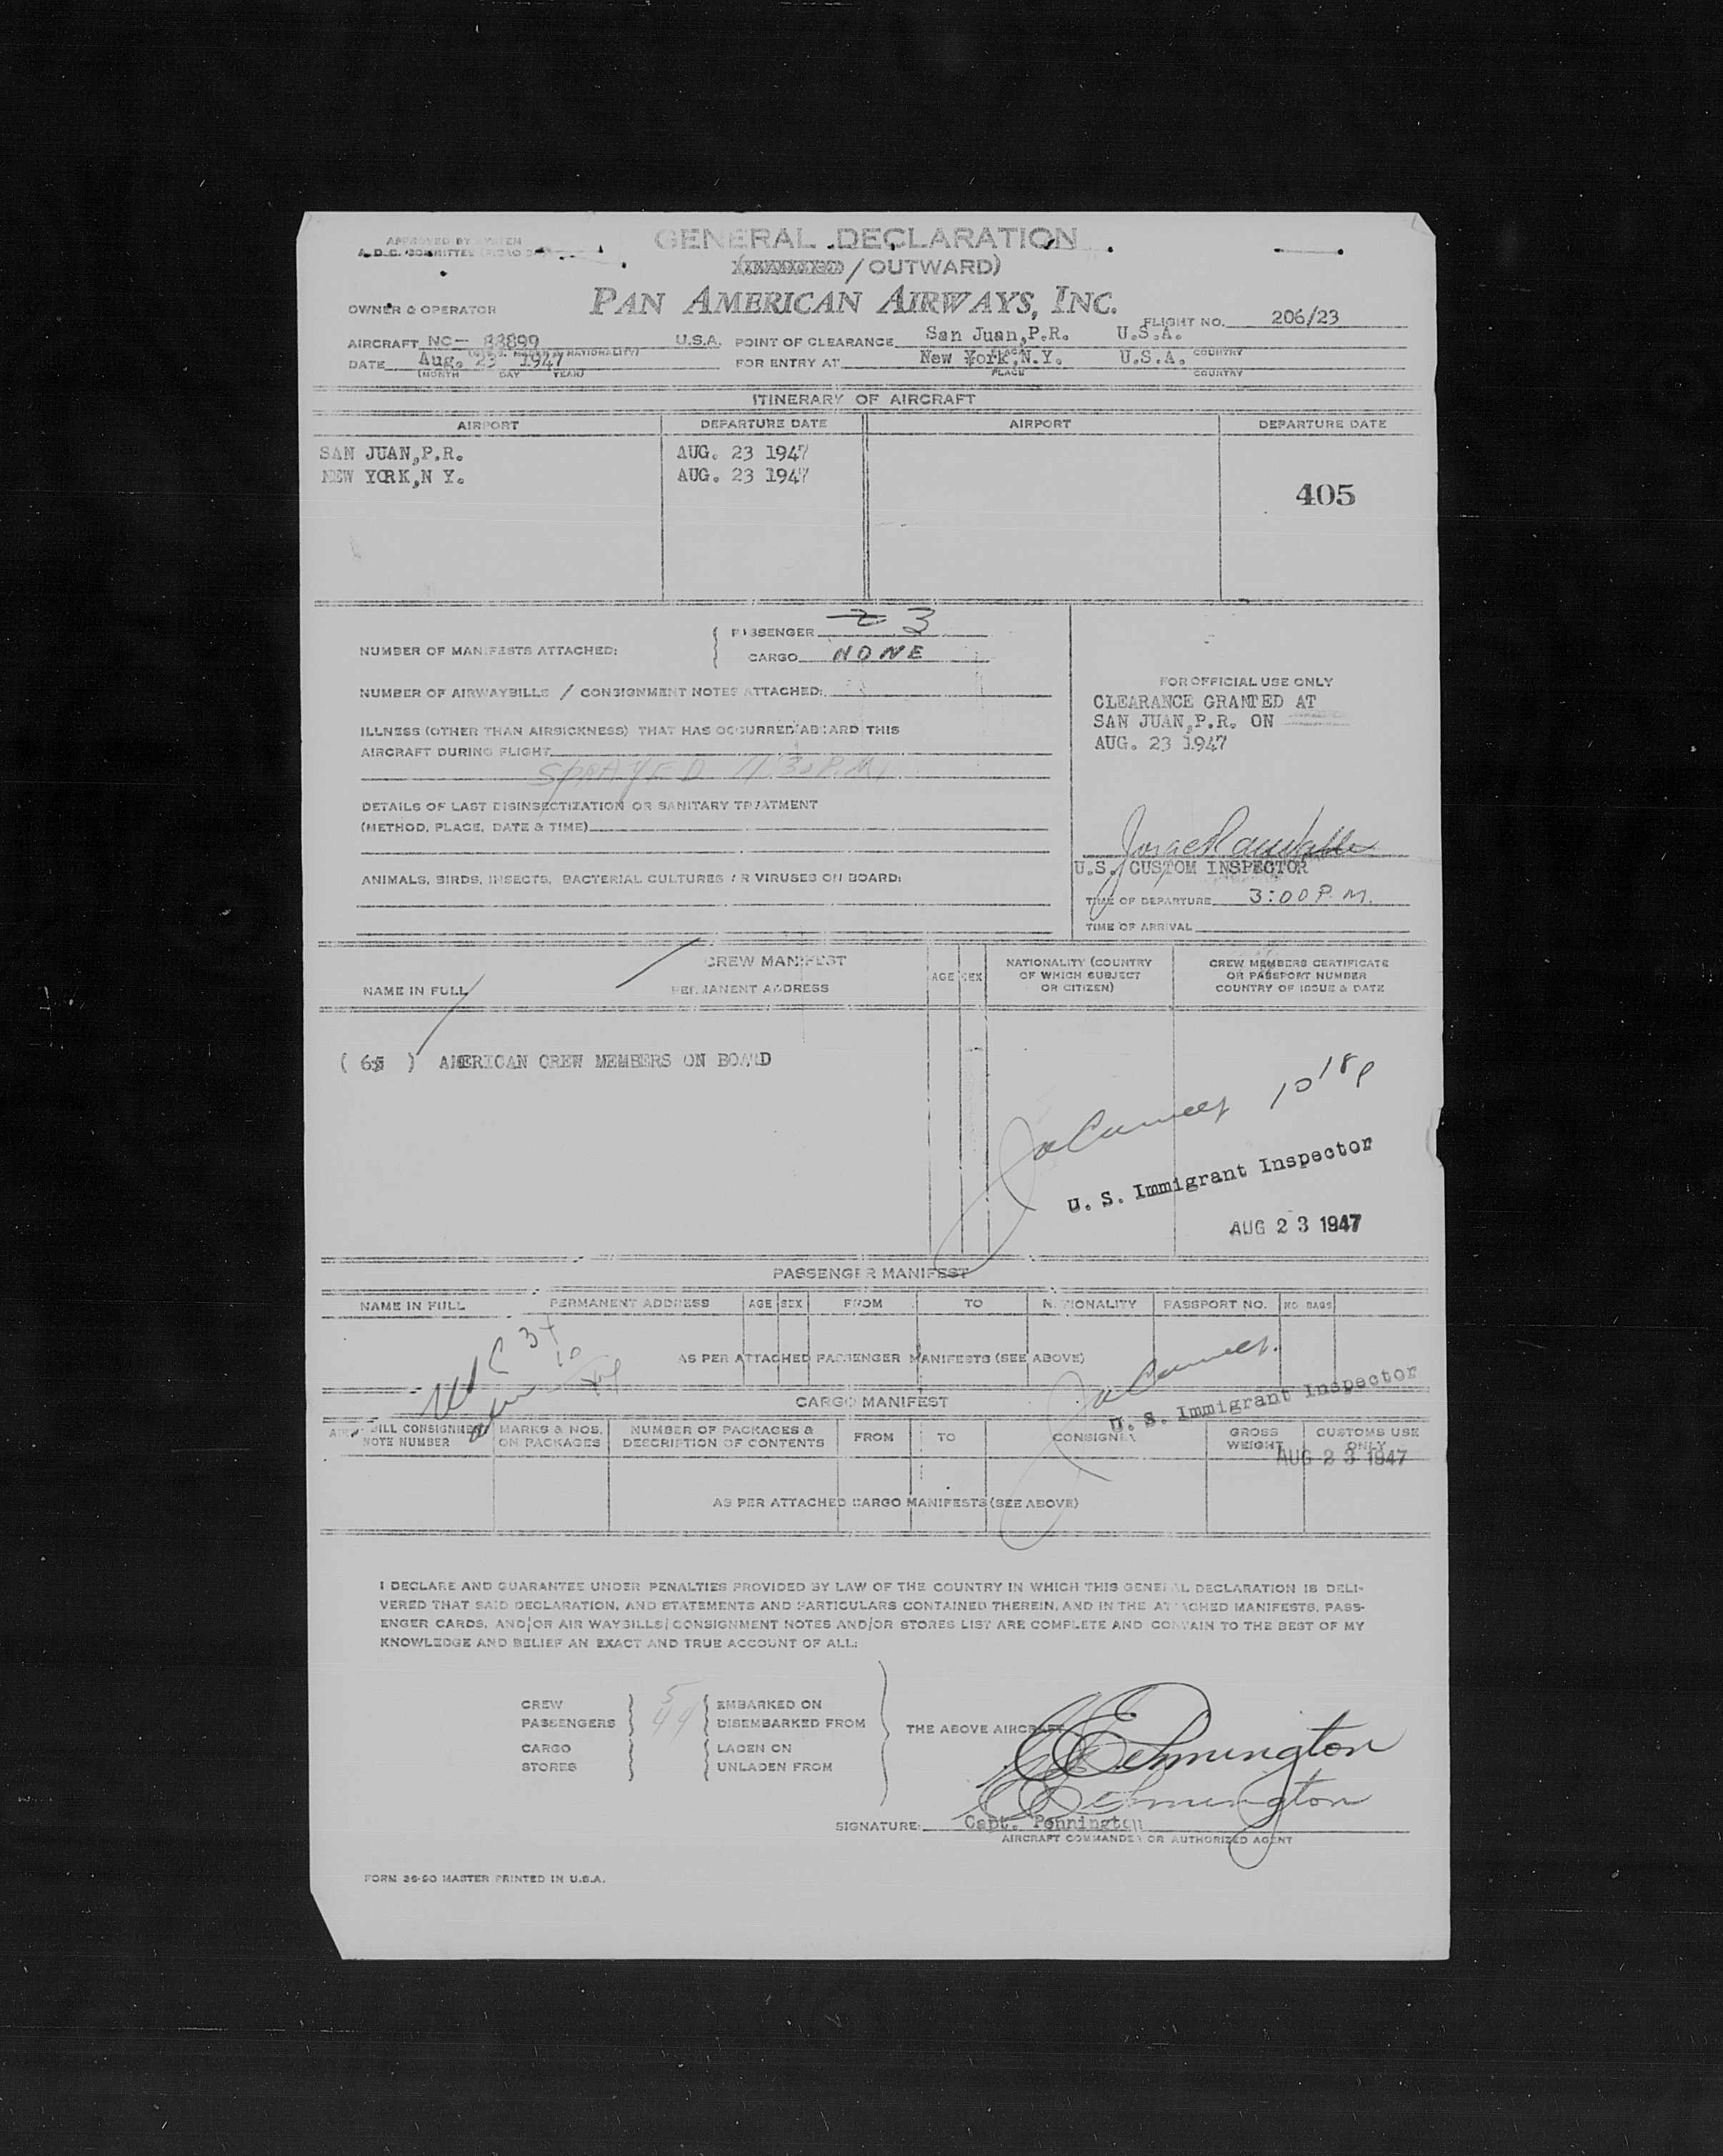 APPROVED BY SYSTEM
A.D.C. COMMITTEE
GENERAL DECLARATION
/ OUTWARD)
OWNER & OPERATOR PAN AMERICAN AIRWAYS, INC.
FLIGHT NO. 206/23
AIRCRAFT NC- 88899 U.S.A. POINT OF CLEARANCE San Juan,P.R. U.S.A.
NATIONALITY) PLACE COUNTRY
DATE Aug. 23 1947 FOR ENTRY AT New York,N.Y. U.S.A.
(MONTH DAY YEAR) PLACE COUNTRY
ITINERARY OF AIRCRAFT
AIRPORT DEPARTURE DATE AIRPORT DEPARTURE DATE
SAN JUAN,P.R. AUG. 23 1947
NEW YORK,N Y. AUG. 23 1947
405
NUMBER OF MANIFESTS ATTACHED:
PASSENGER 2 3
CARGO NONE
NUMBER OF AIRWAYBILLS / CONSIGNMENT NOTES ATTACHED:
ILLNESS (OTHER THAN AIRSICKNESS) THAT HAS OCCURRED ABOARD THIS
AIRCRAFT DURING FLIGHT
SPRAYED 11:30 P.M.
DETAILS OF LAST DISINSECTIZATION OR SANITARY TREATMENT
(METHOD, PLACE, DATE & TIME)
ANIMALS, BIRDS, INSECTS, BACTERIAL CULTURES OR VIRUSES ON BOARD:
FOR OFFICIAL USE ONLY
CLEARANCE GRANTED AT
SAN JUAN,P.R. ON
AUG. 23 1947
U.S. CUSTOM INSPECTOR
TIME OF DEPARTURE 3:00 P.M.
TIME OF ARRIVAL
CREW MANIFEST
NAME IN FULL PERMANENT ADDRESS AGE SEX NATIONALITY (COUNTRY OF WHICH SUBJECT OR CITIZEN) CREW MEMBERS CERTIFICATE OR PASSPORT NUMBER COUNTRY OF ISSUE & DATE
( 65 ) AMERICAN CREW MEMBERS ON BOARD
10 18 P
U. S. Immigrant Inspector
AUG 23 1947
PASSENGER MANIFEST
NAME IN FULL PERMANENT ADDRESS AGE SEX FROM TO NATIONALITY PASSPORT NO. NO BAGS
AS PER ATTACHED PASSENGER MANIFESTS (SEE ABOVE)
CARGO MANIFEST
U. S. Immigrant Inspector
AIRWAYBILL CONSIGNMENT NOTE NUMBER MARKS & NOS. ON PACKAGES NUMBER OF PACKAGES & DESCRIPTION OF CONTENTS FROM TO CONSIGNEE GROSS WEIGHT CUSTOMS USE ONLY
AUG 23 1947
AS PER ATTACHED CARGO MANIFESTS (SEE ABOVE)
I DECLARE AND GUARANTEE UNDER PENALTIES PROVIDED BY LAW OF THE COUNTRY IN WHICH THIS GENERAL DECLARATION IS DELI-
VERED THAT SAID DECLARATION, AND STATEMENTS AND PARTICULARS CONTAINED THEREIN, AND IN THE ATTACHED MANIFESTS, PASS-
ENGER CARDS, AND/OR AIR WAYBILLS/CONSIGNMENT NOTES AND/OR STORES LIST ARE COMPLETE AND CONTAIN TO THE BEST OF MY
KNOWLEDGE AND BELIEF AN EXACT AND TRUE ACCOUNT OF ALL:
CREW 5 EMBARKED ON
PASSENGERS 44 DISEMBARKED FROM
THE ABOVE AIRCRAFT
CARGO LADEN ON
STORES UNLADEN FROM
SIGNATURE: Capt. Pennington
AIRCRAFT COMMANDER OR AUTHORIZED AGENT
FORM 36-90 MASTER PRINTED IN U.S.A.